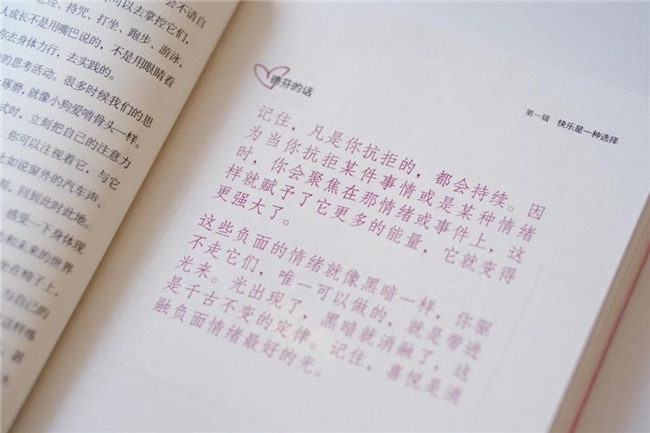 会不请自
持咒、打坐、跑步、游泳,
人成长不是用嘴巴说的,不是用眼睛看
你去身体力行,去实践的。
的思考活动。很多时候我们的思
琢磨,就像小狗爱啃骨头一样。
式时,立刻把自己的注意力
你可以注视着它,与它
比如说窗外的汽车声、
制,回到此时此地。
感受一下身体现
去和未来的世界
坐在椅子上,
与自己的
德芬的话
第一辑 快乐是一种选择
记住,凡是你抗拒的,都会持续。因
为当你抗拒某件事情或是某种情绪
时,你会聚焦在那情绪或事件上,这
样就赋予了它更多的能量,它就变得
更强大了。
这些负面的情绪就像黑暗一样,你驱
不走它们,唯一可以做的,就是带进
光来。光出现了,黑暗就消融了,这
是千古不变的定律。记住,喜悦是消
融负面情绪最好的光。